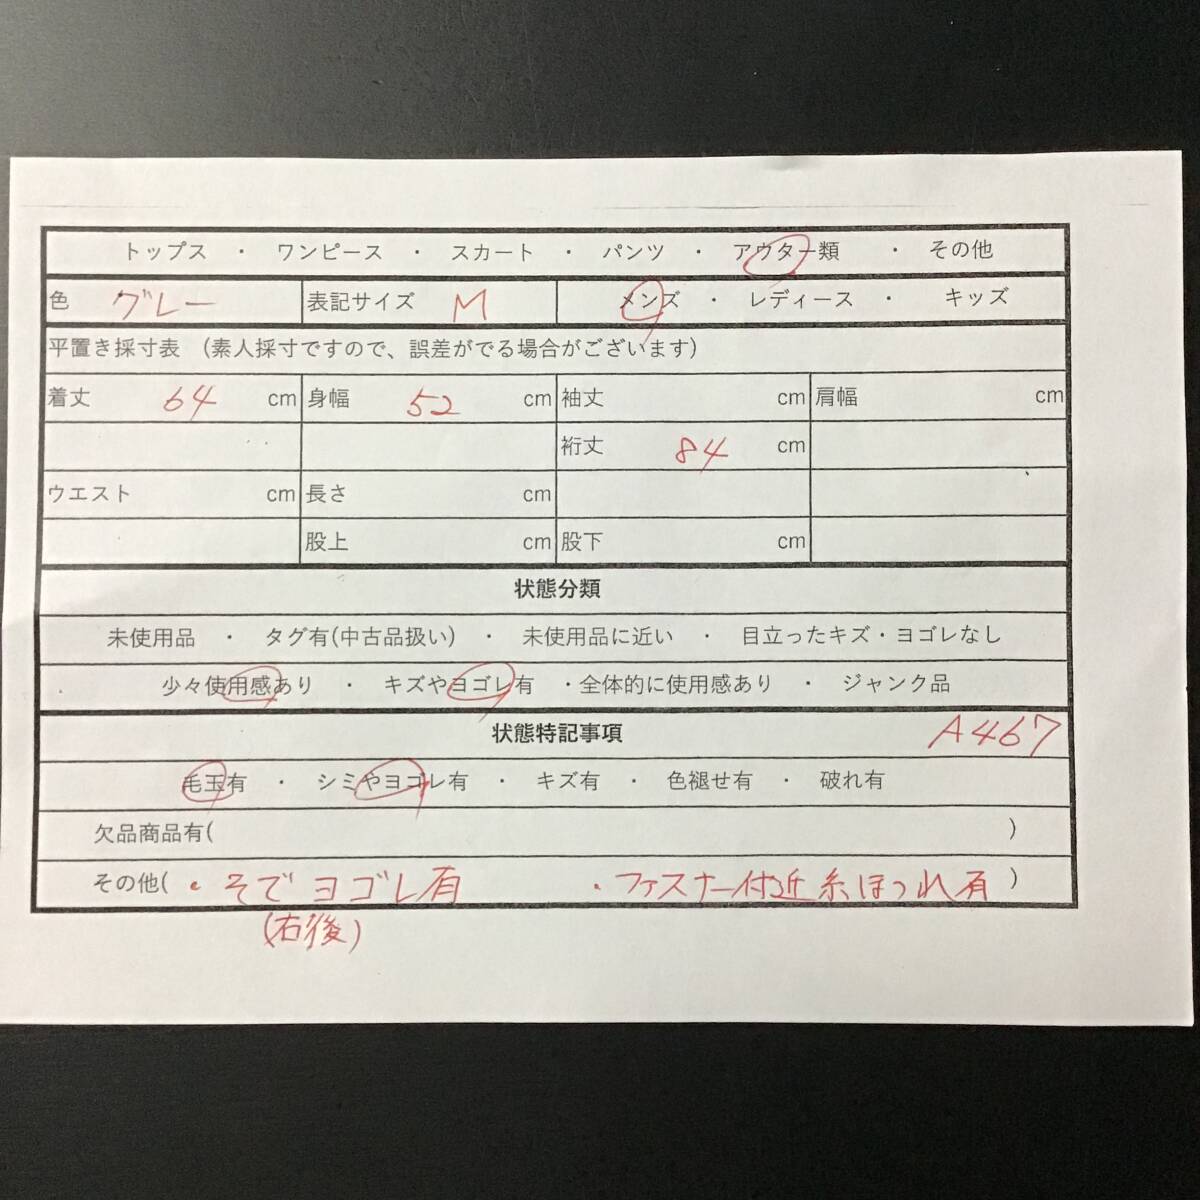 トップス ・ ワンピース ・ スカート ・ パンツ ・ アウター類 ・ その他
色 グレー 表記サイズ M メンズ ・ レディース ・ キッズ
平置き採寸表 (素人採寸ですので、誤差がでる場合がございます)
着丈 64 cm 身幅 52 cm 袖丈 cm 肩幅 cm
裄丈 84 cm
ウエスト cm 長さ cm
股上 cm 股下 cm
状態分類
未使用品 ・ タグ有(中古品扱い) ・ 未使用品に近い ・ 目立ったキズ・ヨゴレなし
少々使用感あり ・ キズやヨゴレ有 ・全体的に使用感あり ・ ジャンク品
状態特記事項 A467
毛玉有 ・ シミやヨゴレ有 ・ キズ有 ・ 色褪せ有 ・ 破れ有
欠品商品有( )
その他( ・そでヨゴレ有 ・ファスナー付近糸ほつれ有 )
(右後)